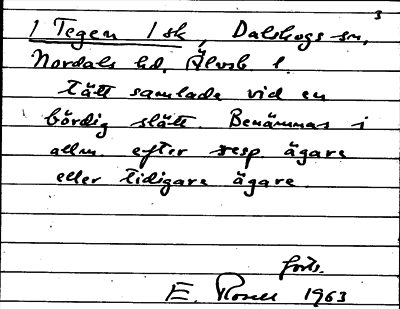 3
1 Tegen 1 sk, Dalskogs sn,
Nordals hd. Älvsb l.
tätt samlade vid en
bördig slätt. Benämnas i
allm. efter resp. ägare
eller tidigare ägare.
forts.
E. Rosell 1963